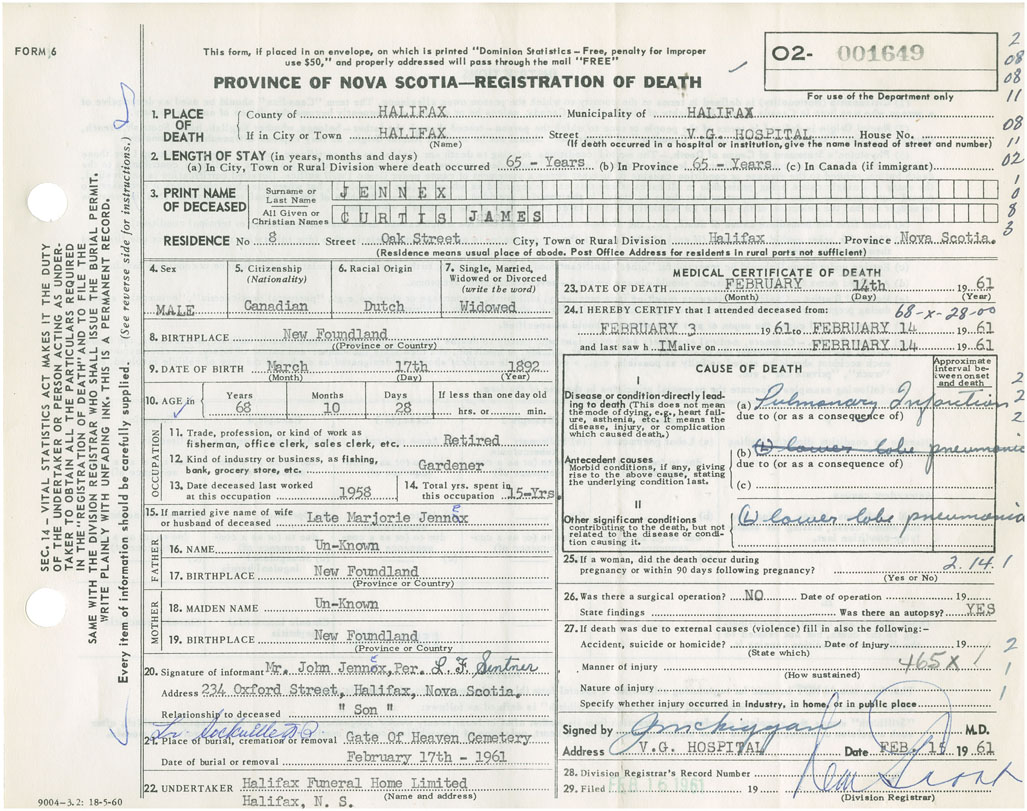 FORM 6
This form, if placed in an envelope, on which is printed "Dominion Statistics – Free, penalty for improper
use $50," and properly addressed will pass through the mail "FREE"
PROVINCE OF NOVA SCOTIA—REGISTRATION OF DEATH
O2- 001649
For use of the Department only
2
08
08
11
08
11
02
1
0
8
3
1. PLACE OF DEATH
County of HALIFAX Municipality of HALIFAX
If in City or Town HALIFAX Street V.G. HOSPITAL House No.
(Name) (If death occurred in a hospital or institution, give the name instead of street and number)
2. LENGTH OF STAY (in years, months and days)
(a) In City, Town or Rural Division where death occurred 65 - Years (b) In Province 65 - Years (c) In Canada (if immigrant)
3. PRINT NAME OF DECEASED
Surname or Last Name JENNEX
All Given or Christian Names CURTIS JAMES
RESIDENCE No 8 Street Oak Street City, Town or Rural Division Halifax Province Nova Scotia.
(Residence means usual place of abode. Post Office Address for residents in rural parts not sufficient)
4. Sex
MALE
5. Citizenship
(Nationality)
Canadian
6. Racial Origin
Dutch
7. Single, Married,
Widowed or Divorced
(write the word)
Widowed
8. BIRTHPLACE New Foundland
(Province or Country)
9. DATE OF BIRTH March 17th 1892
(Month) (Day) (Year)
10. AGE in
Years Months Days If less than one day old
68 10 28 hrs. or min.
OCCUPATION
11. Trade, profession, or kind of work as
fisherman, office clerk, sales clerk, etc. Retired
12. Kind of industry or business, as fishing,
bank, grocery store, etc. Gardener
13. Date deceased last worked
at this occupation 1958
14. Total yrs. spent in
this occupation 15-Yrs.
15. If married give name of wife
or husband of deceased Late Marjorie Jennox
e
FATHER
16. NAME Un-Known
17. BIRTHPLACE New Foundland
(Province or Country)
MOTHER
18. MAIDEN NAME Un-Known
19. BIRTHPLACE New Foundland
(Province or Country)
20. Signature of informant Mr. John Jennox, Per. L. F. Sentner
e
Address 234 Oxford Street, Halifax, Nova Scotia.
Relationship to deceased " Son "
21. Place of burial, cremation or removal Gate Of Heaven Cemetery
Date of burial or removal February 17th - 1961
22. UNDERTAKER Halifax Funeral Home Limited
(Name and address)
Halifax, N. S.
9004-3.2: 18-5-60
MEDICAL CERTIFICATE OF DEATH
23. DATE OF DEATH FEBRUARY 14th 1961
(Month) (Day) (Year)
24. I HEREBY CERTIFY that I attended deceased from:
68-x-28-00
FEBRUARY 3 1961 to FEBRUARY 14 1961
and last saw h IM alive on FEBRUARY 14 1961
CAUSE OF DEATH
Approximate interval between onset and death
I
Disease or condition directly leading to death (This does not mean
the mode of dying, e.g., heart failure, asthenia, etc. It means the
disease, injury, or complication
which caused death.)
(a) Pulmonary Infarction
due to (or as a consequence of)
2
2
2
Antecedent causes
Morbid conditions, if any, giving
rise to the above cause, stating
the underlying condition last.
(b) (L) lower lobe pneumonia
due to (or as a consequence of)
(c)
II
Other significant conditions
contributing to the death, but not
related to the disease or condition causing it.
(L) lower lobe pneumonia
25. If a woman, did the death occur during
pregnancy or within 90 days following pregnancy?
(Yes or No)
2.14.1
26. Was there a surgical operation? NO Date of operation 19
State findings Was there an autopsy? YES
27. If death was due to external causes (violence) fill in also the following:–
Accident, suicide or homicide? Date of injury 19
(State which)
2
Manner of injury 465X 1
(How sustained)
1
Nature of injury
1
Specify whether injury occurred in industry, in home, or in public place
Signed by M.D.
Address V.G. HOSPITAL Date FEB. 15 1961
28. Division Registrar's Record Number
29. Filed FEB 16 1961 19
(Division Registrar)
SEC. 14 – VITAL STATISTICS ACT MAKES IT THE DUTY
OF THE UNDERTAKER OR PERSON ACTING AS UNDERTAKER TO OBTAIN ALL THE PARTICULARS REQUIRED
IN THE "REGISTRATION OF DEATH" AND TO FILE THE
SAME WITH THE DIVISION REGISTRAR WHO SHALL ISSUE THE BURIAL PERMIT.
WRITE PLAINLY WITH UNFADING INK. THIS IS A PERMANENT RECORD.
Every item of information should be carefully supplied. (See reverse side for instructions.)